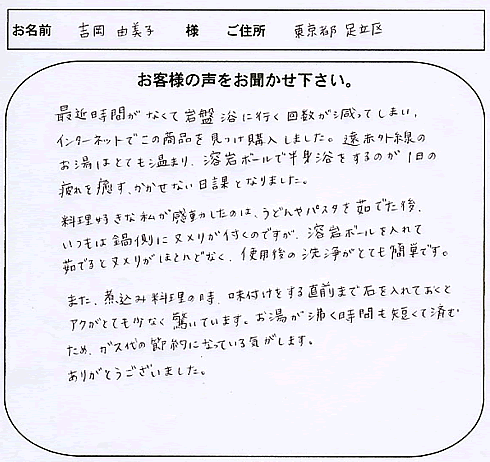 お名前 吉岡 由美子 様 ご住所 東京都 足立区
お客様の声をお聞かせ下さい。
最近時間がなくて岩盤浴に行く回数が減ってしまい、
インターネットでこの商品を見つけ購入しました。遠赤外線の
お湯はとても温まり、溶岩ボールで半身浴をするのが1日の
疲れを癒す、かかせない日課となりました。
料理好きな私が感動したのは、うどんやパスタを茹でた後、
いつもは鍋側にヌメリが付くのですが、溶岩ボールを入れて
茹でるとヌメリがほとんどなく、使用後の洗浄がとても簡単です。
また、煮込み料理の時、味付けをする直前まで石を入れておくと
アクがとても少なく驚いています。お湯が沸く時間も短くて済む
ため、ガス代の節約になっている気がします。
ありがとうございました。